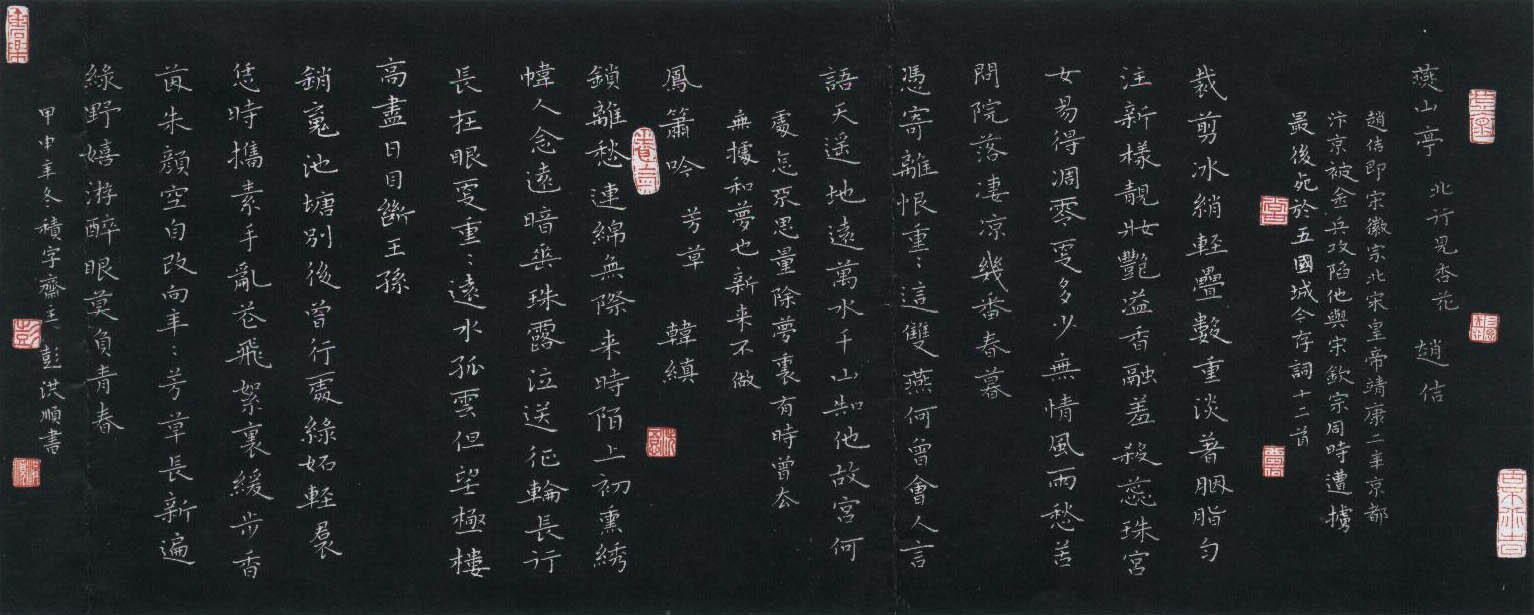 燕山亭 北行見杏花 趙佶
趙佶即宋徽宗北宋皇帝靖康二年京都
汴京被金兵攻陷他與宋欽宗同時遭擄
最後死於五國城今存詞十二首
裁剪冰綃輕疊數重淡著胭脂勻
注新樣靚妝艷溢香融羞殺蕊珠宮
女易得凋零更多少無情風雨愁苦
問院落淒涼幾番春暮
馮寄離恨重〻這雙燕何曾會人言
語天遥地遠萬水千山知他故宮何
處怎不思量除夢裏有時曾去
無據和夢也新来不做
鳳簫吟 芳草 韓縝
鎖離愁連綿無際来時陌上初熏綉
幃人念遠暗垂珠露泣送征輪長行
長在眼更重〻遠水孤雲但望極樓
高盡日目斷王孫
銷魂池塘別後曾行處綠妬輕裙
恁時攜素手亂花飛絮裏緩步香
茵朱顏空自改向年〻芳草長新遍
綠野嬉游醉眼莫負青春
甲申年冬積字齋主 彭洪順書
彭